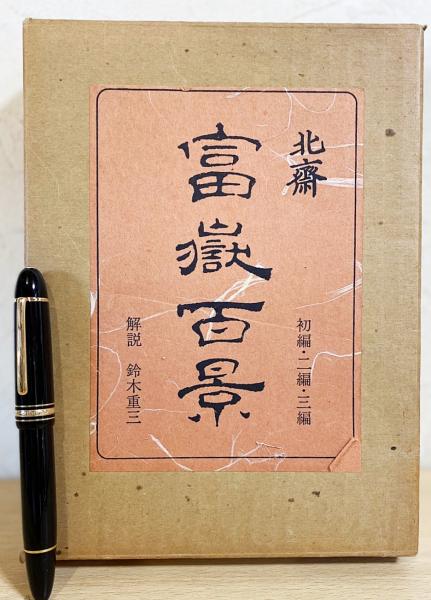 北齋
富嶽百景
初編・二編・三編
解説 鈴木重三